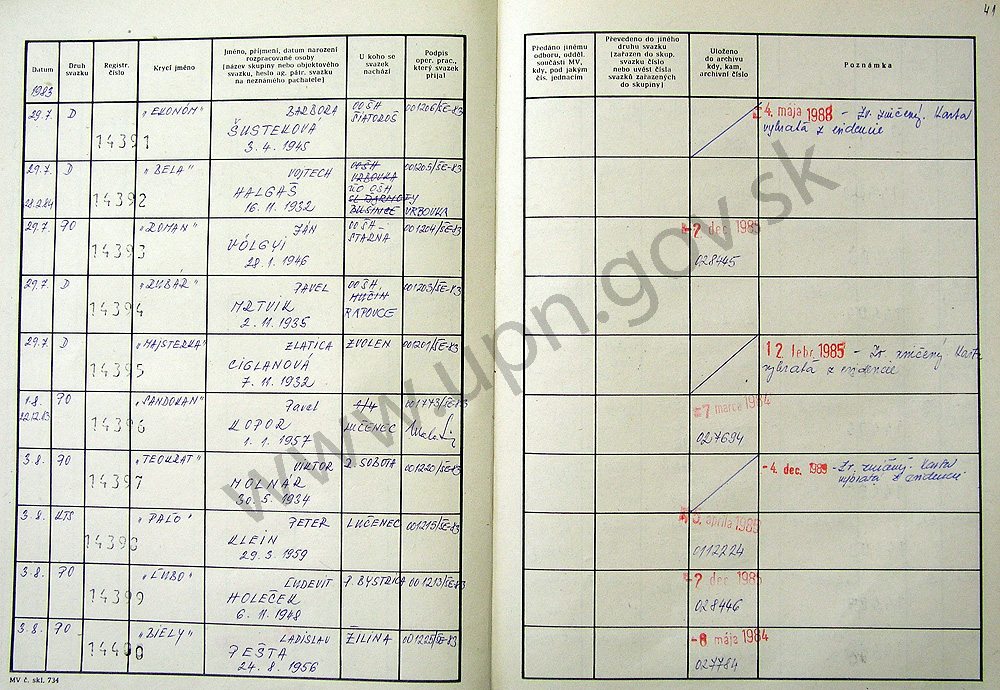 41
Datum
Druh svazku
Registr. číslo
Krycí jméno
Jméno, příjmení, datum narození rozpracované osoby (název skupiny nebo objektového svazku, heslo ag. pátr. svazku na neznámého pachatele)
U koho se svazek nachází
Podpis oper. prac., který svazek přijal
Předáno jinému odboru, odděl. součásti MV, kdy, pod jakým čís. jednacím
Převedeno do jiného druhu svazku (zařazen do skup. svazku číslo nebo uvést čísla svazků zařazených do skupiny)
Uloženo do archivu kdy, kam, archivní číslo
Poznámka
1983
29.7. D 14391 "EKONÓM" BARBORA OOŠH 001206/ŠE-83
ŠUSTEKOVÁ ŠIATOROŠ
3. 4. 1945
4. mája 1988 - Zv. zničený. Karta
vybratá z evidencie
29.7. D 14392 "BELA" VOJTECH OOŠH 001205/ŠE-83
VRBOVKA
HALGAŠ OO OŠH
28.2.84 16. 11. 1932 BUŠINCE VRBOVKA
29.7. PO 14393 "ROMAN" JÁN OOŠH - 001204/ŠE-83
STARNA
VÖLGYI
28. 1. 1946
-2 dec 1985
028445
29.7. D 14394 "RUBÁR" PAVEL OOŠH, 001203/ŠE-83
MUČÍN
MRTVIK RAPOVCE
2. 11. 1935
29.7. D 14395 "MAJSTERKA" ZLATICA ZVOLEN 001201/ŠE-83
CIGLANOVÁ
7. 11. 1932
12. febr. 1985 - Zv. zničený Karta
vybratá z evidencie
1.8. PO 14396 "SANDOKAN" Pavel 001773/ŠE-83
22.12.83
KOPOR LUČENEC
1. 1. 1957
-7 marca 1984
027694
3.8. PO 14397 "TEOKRAT" VIKTOR R. SOBOTA 001220/ŠE-83
MOLNÁR
30. 5. 1934
-4. dec. 1989 - Zv. zničený. Karta
vybratá z evidencie
3.8. KTS 14398 "PAĽO" PETER LUČENEC 001215/ŠE-83
KLEIN
29. 3. 1959
apríla 1985
0112224
3.8. PO 14399 "ĽUBO" ĽUDEVÍT P. BYSTRICA 001213/ŠE-83
HOLEČEK
6. 11. 1948
-2 dec 1985
028446
3.8. PO 14400 "BIELY" LADISLAV ŽILINA 001225/ŠE-83
PEŠTA
24. 8. 1956
-8 mája 1984
027784
MV č. skl. 734
www.upn.gov.sk